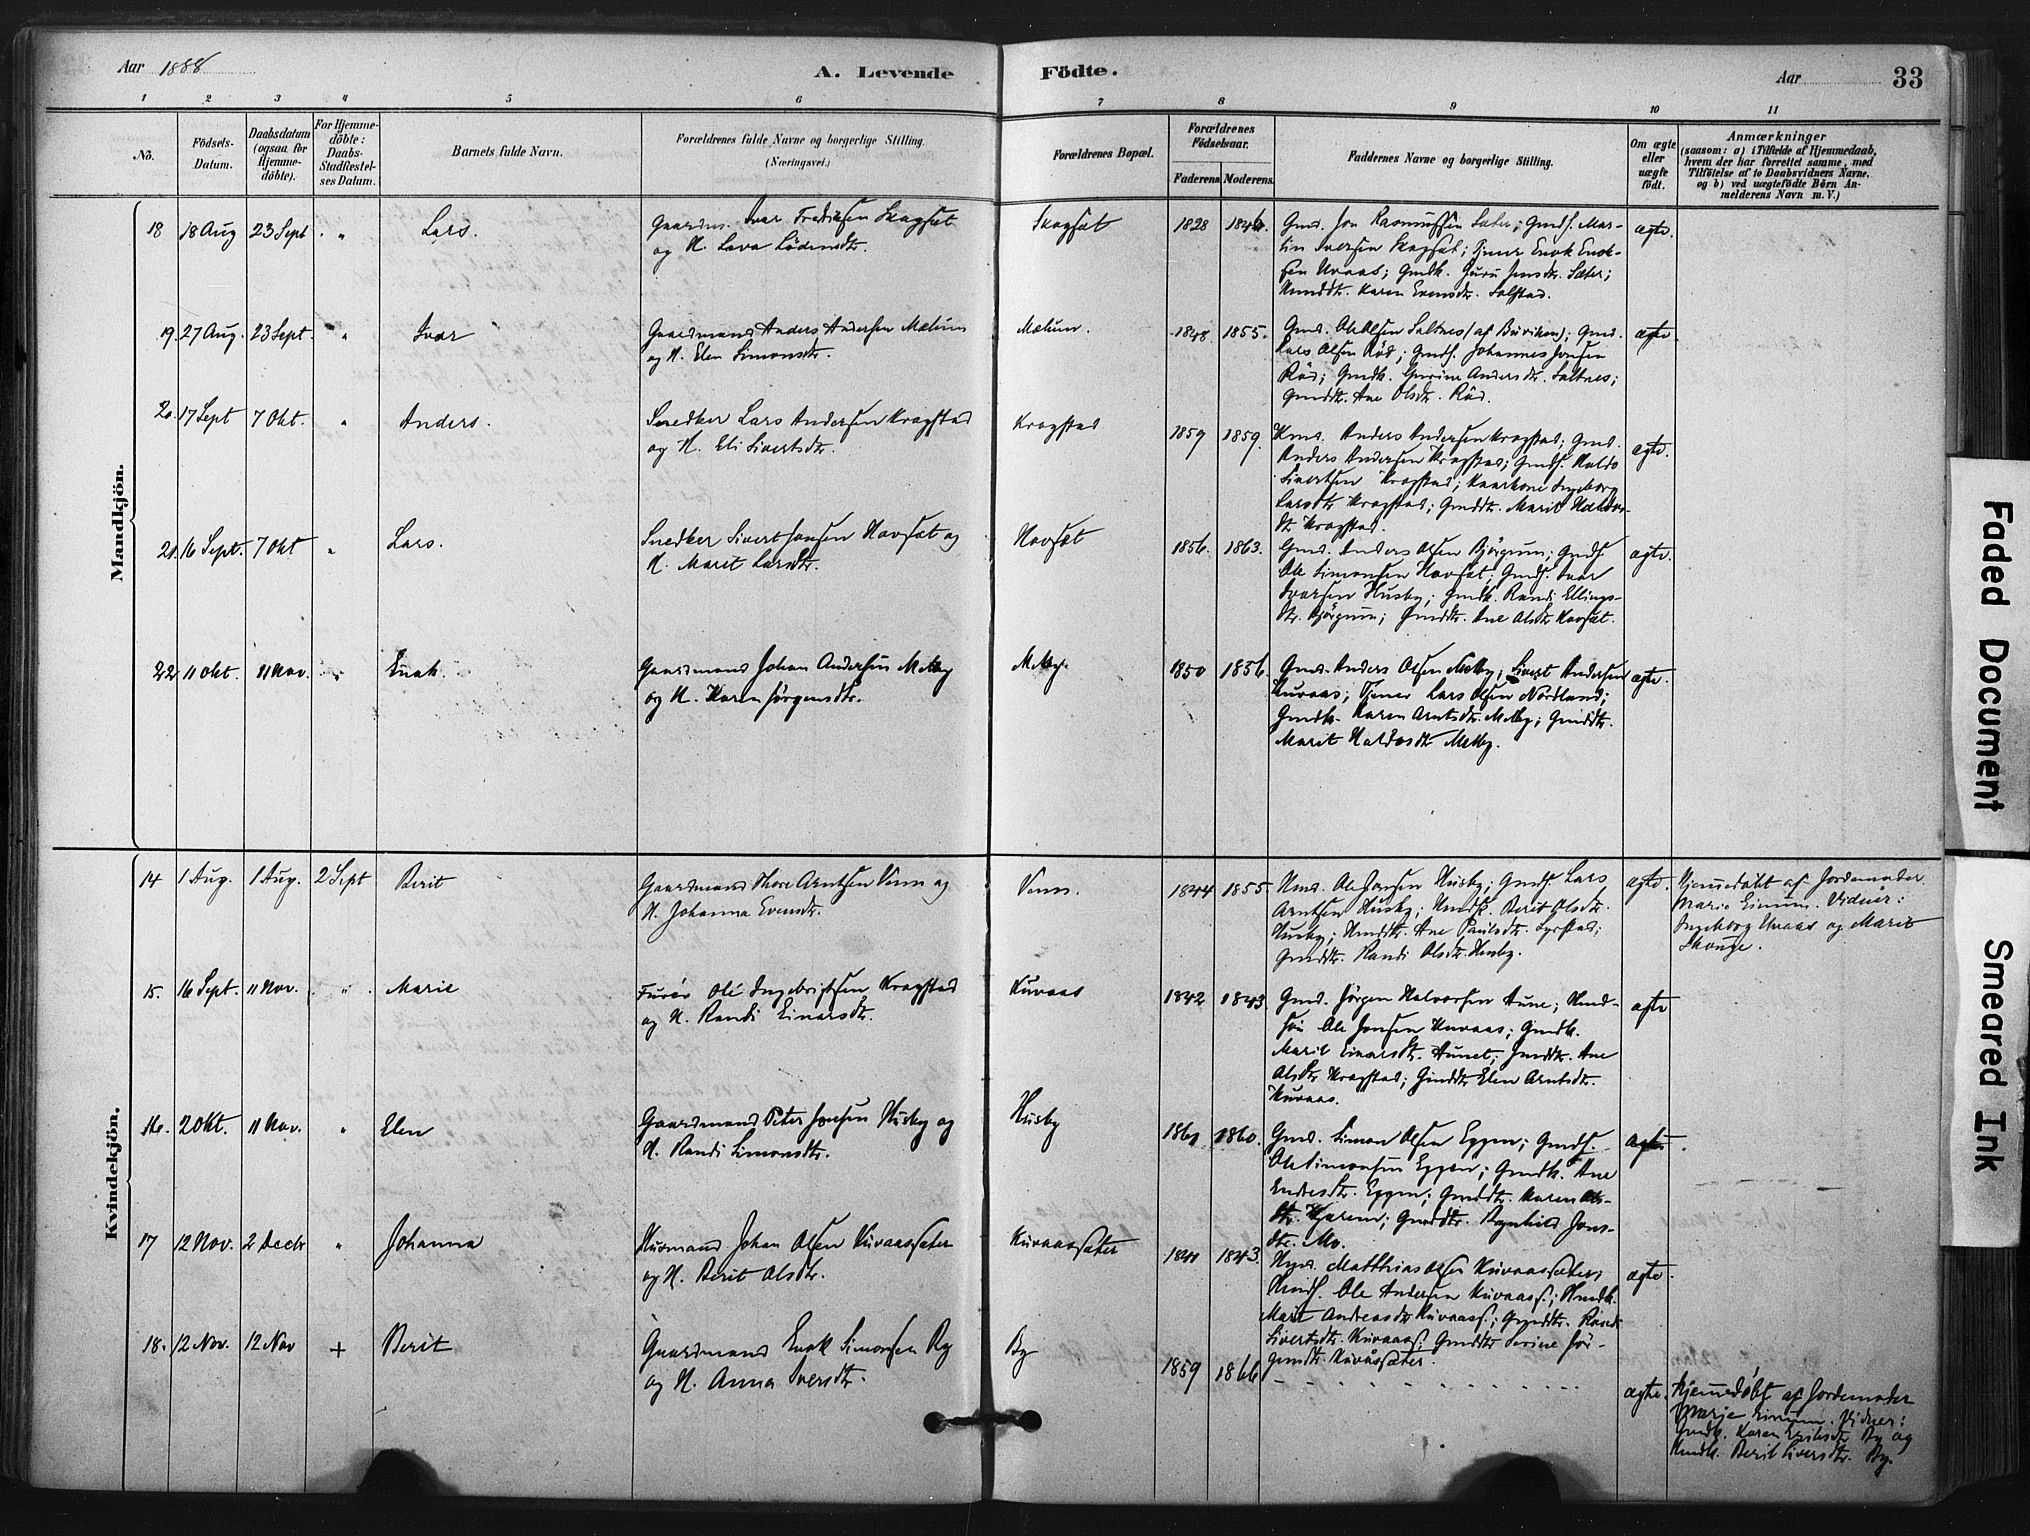 Aar 1888
A. Levende
Födte.
Aar
33
1 2 3 4 5 6 7 8 9 10 11
No.
Födsels-
Datum.
Daabsdatum
(ogsaa for
Hjemme-
döbte).
For Hjemme-
döbte:
Daabs-
Stadfæstel-
ses Datum.
Barnets fulde Navn.
Forældrenes fulde Navne og borgerlige Stilling.
(Næringsvei.)
Forældrenes Bopæl.
Forældrenes
Födselsaar.
Faderens Moderens.
Faddernes Navne og borgerlige Stilling.
Om ægte
eller
uægte
födt.
Anmærkninger
(saasom: a) i Tilfælde af Hjemmedaab,
hvem der har forrettet samme, med
Tilföielse af to Daabsvidners Navne.
og b) ved uægtefödte Börn An-
melderens Navn m. V.)
Mandkjön.
18 18 Aug 23 Sept. " Lars.
Gaardm. Ivar Fredriksen Skagset
og H. Lava
Skogset
1828 1846.
Gmd. Jon Rasmussen Sæter; Gmds. Mar-
tin Iversen Skogset; Tjener Enok Enok-
sen Uvaas; Gmdk. Guru Jensdtr. Sæter;
Karen Evensdtr. Solstad.
ægte.
19. 27 Aug. 23 Sept. " Ivar
Gaardmand Anders Andersen Mælum
og H. Elen Simonsdtr.
Mælum.
1848 1855.
Gmd. Ole Olsen Saltnes (af Buviken); Gmd.
Lars Olsen Röd; Gmds. Johannes Jonsen
Röd; Gmdk. Gurine Andersdtr. Saltnes;
Gmddtr. Ane Olsdtr. Röd.
ægte.
20. 17 Sept 7 Okt. " Anders.
Snedker Lars Andersen Krogstad
og H. Eli Sivertsdtr.
Krogstad
1859 1859.
Anders Andersen Krogstad; Gmd.
Anders Andersen Krogstad; Gmds. Haldo
Sivertsen Krogstad; Ingeborg
Larsdtr Krogstad; Gmddtr. Marit Haldos-
dtr Krogstad.
ægte.
21. 16 Sept. 7 Okt " Lars.
Snedker Sivert Jonsen Hovset og
H. Marit Larsdtr.
Hovset
1856. 1863.
Gmd. Anders Olsen Björgum; Gmds.
Ole Simonsen Hovset; Gmds. Ivar
Ivarsen Husby; Gmdk. Randi Ellings-
dtr. Björgum; Gmddtr. Ane Olsdtr Hovset.
ægte.
22. 11 Okt. 11 Nov. " Enok.
Gaardmand Johan Andersen Melby
og H. Karen Jörgensdtr.
Melby.
1850 1856.
Gmd. Anders Olsen Melby; Sivert Andersen
Kuvaas; Tjener Lars Olsen Nordland;
Gmdk. Karen Arntsdtr. Melby; Gmddtr.
Marit Haldosdtr Melby.
ægte.
Kvindekjön.
14 1 Aug. 1 Aug. 2 Sept Berit
Gaardmand Thore Arntsen Venn og
H. Johanna Evensdtr.
Venn.
1844 1855.
Ole Jonsen Husby; Gmds. Lars
Arntsen Husby; Berit Olsdtr.
Husby; Ane Paulsdtr.
Gmddtr. Randi Olsdtr. Husby.
ægte.
Hjemmedöbt af Jordemoder
Marie Einum. Vidner:
Ingeborg Uvaas og Marit
Skonge.
15. 16 Sept. 11 Nov. " Marie
Ole Ingebrigtsen Krogstad
og H. Randi Einarsdtr.
Kuvaas
1842 1843.
Gmd. Jörgen Halvorsen Aune; Hmd-
sön Ole Jonsen Kuvaas; Gmdk.
Marit Einarsdtr. Aunet; Gmddtr. Ane
Olsdtr Krogstad; Gmddtr Elen Arntsdtr.
Kuvaas.
ægte
16. 2 Okt. 11 Nov. " Elen
Gaardmand Peter Jonsen Husby og
H. Randi Simonsdtr.
Husby
1861 1860.
Gmd. Simon Olsen Eggen; Gmds.
Ole Simonsen Eggen; Gmdk. Ane
Endresdtr. Eggen; Gmddtr. Karen Ols-
dtr. Gmddtr. Ragnhild Jons-
dtr. Mo.
ægte
17 12 Nov. 2 Decbr " Johanna
Husmand Johan Olsen Kuvaassæter
og H. Berit Olsdtr.
Kuvaassæter
1841 1843.
Hmd. Matthias Olsen Kuvaassæter;
Hmds. Ole Andersen Kuvaass.; Hmdk.
Marit Andreasdtr Kuvaass.; Gmddtr. Randi
Sivertsdtr. Kuvaass. Gmddtr Serine Jör-
gensdtr. Kuvaassæter.
ægte.
18. 12 Nov. 12 Nov + Berit
Gaardmand Enok Simonsen By
og H. Anna Iversdtr.
By
1859 1866
ægte.
Hjemmedöbt af Jordemoder
Marie Einum. Vidner:
Gmdk. Karen Eriksdtr By og
Hmdk. Berit Siversdtr. By.
Faded Document
Smeared Ink